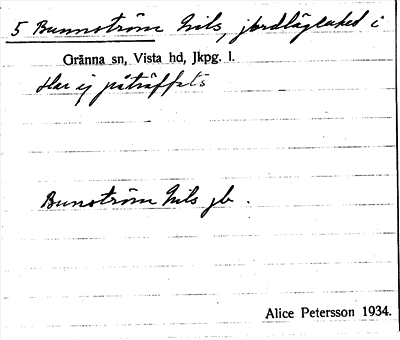 5 Bunnström Nils, jordlägenhet i
Gränna sn, Vista hd, Jkpg. l.
Har ej påträffats
Bunström Nils jb.
Alice Petersson 1934.